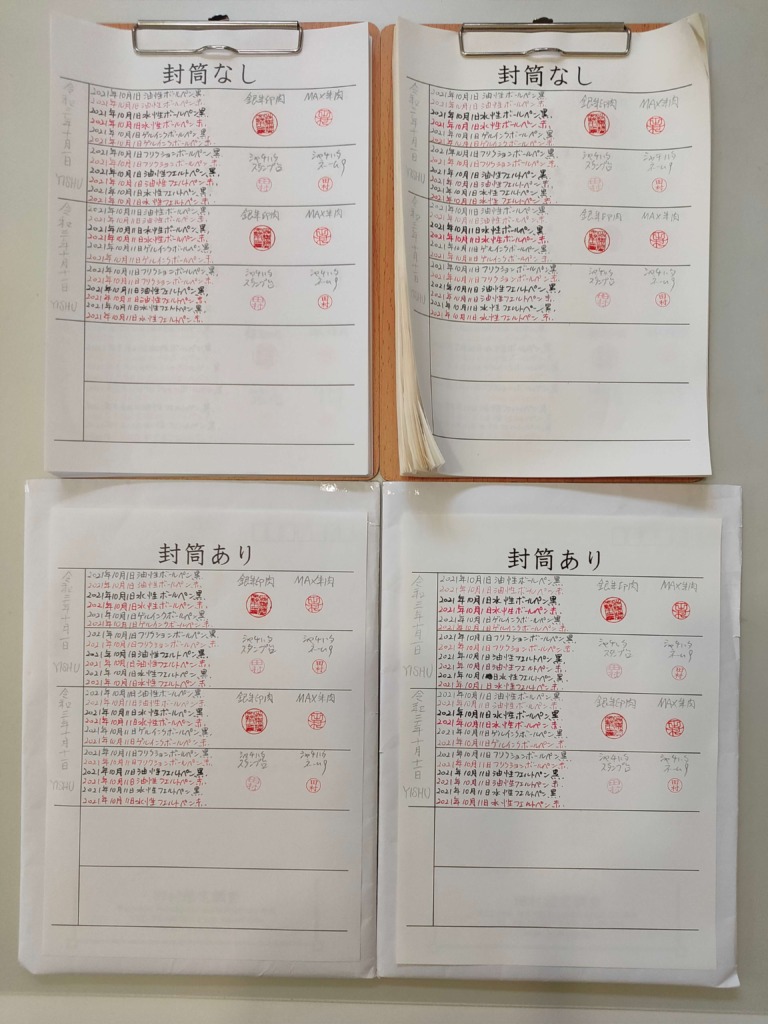 封筒なし
令和三年十月一日
YISHU
2021年10月1日油性ボールペン黒
2021年10月1日油性ボールペン赤.
2021年10月1日水性ボールペン黒.
2021年10月1日水性ボールペン赤.
2021年10月1日ゲルインクボールペン黒
2021年10月1日ゲルインクボールペン赤
銀朱印肉
MAX朱肉
2021年10月1日フリクションボールペン黒
2021年10月1日フリクションボールペン赤
2021年10月1日油性フェルトペン黒.
2021年10月1日油性フェルトペン赤.
2021年10月1日水性フェルトペン黒
2021年10月1日水性フェルトペン赤.
シャチハタ
スタンプ台
シャチハタ
ネーム9
田村
令和三年十月十一日
YISHU
2021年10月11日油性ボールペン黒
2021年10月11日油性ボールペン赤
2021年10月11日水性ボールペン黒
2021年10月11日水性ボールペン赤.
2021年10月11日ゲルインクボールペン黒
2021年10月11日ゲルインクボールペン赤.
銀朱印肉
MAX朱肉
2021年10月11日フリクションボールペン黒
2021年10月11日フリクションボールペン赤
2021年10月11日油性フェルトペン黒,
2021年10月11日油性フェルトペン赤.
2021年10月11日水性フェルトペン黒,
2021年10月11日水性フェルトペン赤.
シャチハタ
スタンプ台
シャチハタ
ネーム9
田村
封筒なし
令和三年十月一日
YISHU
2021年10月1日油性ボールペン黒
2021年10月1日油性ボールペン赤
2021年10月1日水性ボールペン黒
2021年10月1日水性ボールペン赤.
2021年10月1日ゲルインクボールペン黒
2021年10月1日ゲルインクボールペン赤
銀朱印肉
MAX朱肉
2021年10月1日フリクションボールペン黒
2021年10月1日フリクションボールペン赤
2021年10月1日油性フェルトペン黒
2021年10月1日油性フェルトペン赤.
2021年10月1日水性フェルトペン黒
2021年10月1日水性フェルトペン赤.
シャチハタ
スタンプ台
シャチハタ
ネーム9
田村
令和三年十月十一日
YISHU
2021年10月11日油性ボールペン黒
2021年10月11日油性ボールペン赤
2021年10月11日水性ボールペン黒
2021年10月11日水性ボールペン赤.
2021年10月11日ゲルインクボールペン黒
2021年10月11日ゲルインクボールペン赤
銀朱印肉
MAX朱肉
2021年10月11日フリクションボールペン黒
2021年10月11日フリクションボールペン赤.
2021年10月11日油性フェルトペン黒,
2021年10月11日油性フェルトペン赤.
2021年10月11日水性フェルトペン黒,
2021年10月11日水性フェルトペン赤.
シャチハタ
スタンプ台
シャチハタ
ネーム9
田村
封筒あり
令和三年十月一日
YISHU
2021年10月1日油性ボールペン黒
2021年10月1日油性ボールペン赤
2021年10月1日水性ボールペン黒
2021年10月1日水性ボールペン赤.
2021年10月1日ゲルインクボールペン黒
2021年10月1日ゲルインクボールペン赤
銀朱印肉
MAX朱肉
2021年10月1日フリクションボールペン黒
2021年10月1日フリクションボールペン赤
2021年10月1日油性フェルトペン黒.
2021年10月1日油性フェルトペン赤.
2021年10月1日水性フェルトペン黒
2021年10月1日水性フェルトペン赤.
シャチハタ
スタンプ台
シャチハタ
ネーム9
田村
令和三年十月十一日
YISHU
2021年10月11日油性ボールペン黒
2021年10月11日油性ボールペン赤
2021年10月11日水性ボールペン黒
2021年10月11日水性ボールペン赤.
2021年10月11日ゲルインクボールペン黒
2021年10月11日ゲルインクボールペン赤
銀朱印肉
MAX朱肉
2021年10月11日フリクションボールペン黒
2021年10月11日フリクションボールペン赤.
2021年10月11日油性フェルトペン黒,
2021年10月11日油性フェルトペン赤.
2021年10月11日水性フェルトペン黒
2021年10月11日水性フェルトペン赤.
シャチハタ
スタンプ台
シャチハタ
ネーム9
田村
封筒あり
令和三年十月一日
YISHU
2021年10月1日油性ボールペン黒
2021年10月1日油性ボールペン赤
2021年10月1日水性ボールペン黒.
2021年10月1日水性ボールペン赤.
2021年10月1日ゲルインクボールペン黒
2021年10月1日ゲルインクボールペン赤
銀朱印肉
MAX朱肉
2021年10月1日フリクションボールペン黒
2021年10月1日フリクションボールペン赤
2021年10月1日油性フェルトペン黒
2021年10月1日油性フェルトペン赤.
2021年10月1日水性フェルトペン黒
2021年10月1日水性フェルトペン赤.
シャチハタ
スタンプ台
シャチハタ
ネーム9
田村
令和三年十月十一日
YISHU
2021年10月11日油性ボールペン黒
2021年10月11日油性ボールペン赤
2021年10月11日水性ボールペン黒
2021年10月11日水性ボールペン赤.
2021年10月11日ゲルインクボールペン黒
2021年10月11日ゲルインクボールペン赤
銀朱印肉
MAX朱肉
2021年10月11日フリクションボールペン黒
2021年10月11日フリクションボールペン赤.
2021年10月11日油性フェルトペン黒,
2021年10月11日油性フェルトペン赤.
2021年10月11日水性フェルトペン黒,
2021年10月11日水性フェルトペン赤.
シャチハタ
スタンプ台
シャチハタ
ネーム9
田村